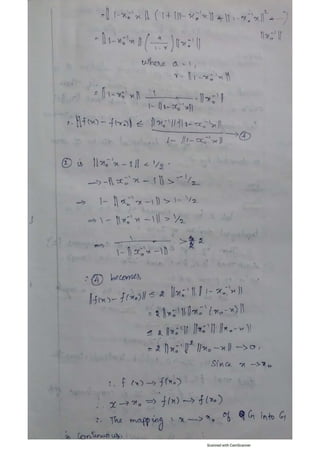 = ‖1-x₀⁻¹x‖ (1+‖1-x₀⁻¹x‖+‖1-x₀⁻¹x‖²+---)
‖x₀⁻¹‖
= ‖1-x₀⁻¹x‖ (a/(1-r)) ‖x₀⁻¹‖
where a = 1,
r = ‖1-x₀⁻¹x‖
= ‖1-x₀⁻¹x‖ 1/(1-‖1-x₀⁻¹x‖) · ‖x₀⁻¹‖
∴ ‖f(x) - f(x₀)‖ ≤ ‖x₀⁻¹‖‖1-x₀⁻¹x‖/(1-‖1-x₀⁻¹x‖) → ④
② is ‖x₀⁻¹x - 1‖ < 1/2 .
→ -‖x₀⁻¹x - 1‖ > -1/2
⇒ 1 - ‖x₀⁻¹x - 1‖ > 1 - 1/2
⇒ 1 - ‖x₀⁻¹x - 1‖ > 1/2
⇒ 1/(1-‖x₀⁻¹x-1‖) > 2
∴ ④ becomes,
‖f(x) - f(x₀)‖ ≤ 2 ‖x₀⁻¹‖ ‖1-x₀⁻¹x‖
= 2 ‖x₀⁻¹‖ ‖x₀⁻¹(x₀-x)‖
≤ 2 ‖x₀⁻¹‖ ‖x₀⁻¹‖ ‖x₀-x‖
= 2 ‖x₀⁻¹‖² ‖x₀-x‖ → 0.
Since x → x₀
∴ f(x) → f(x₀)
∴ x → x₀ ⇒ f(x) → f(x₀)
∴ The mapping : x → x₀ of G into G
is continuous.
Scanned with CamScanner